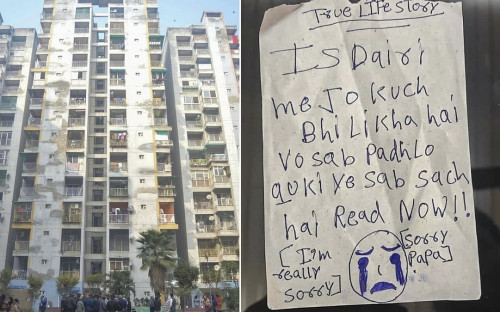 True LIFE Story
Is Dairi
me Jo kuch
Bhi Likha hai
Vo sab Padhlo
quki ye sab sach
hai Read NOW!!
[I'm really sorry]
[sorry PaPa]